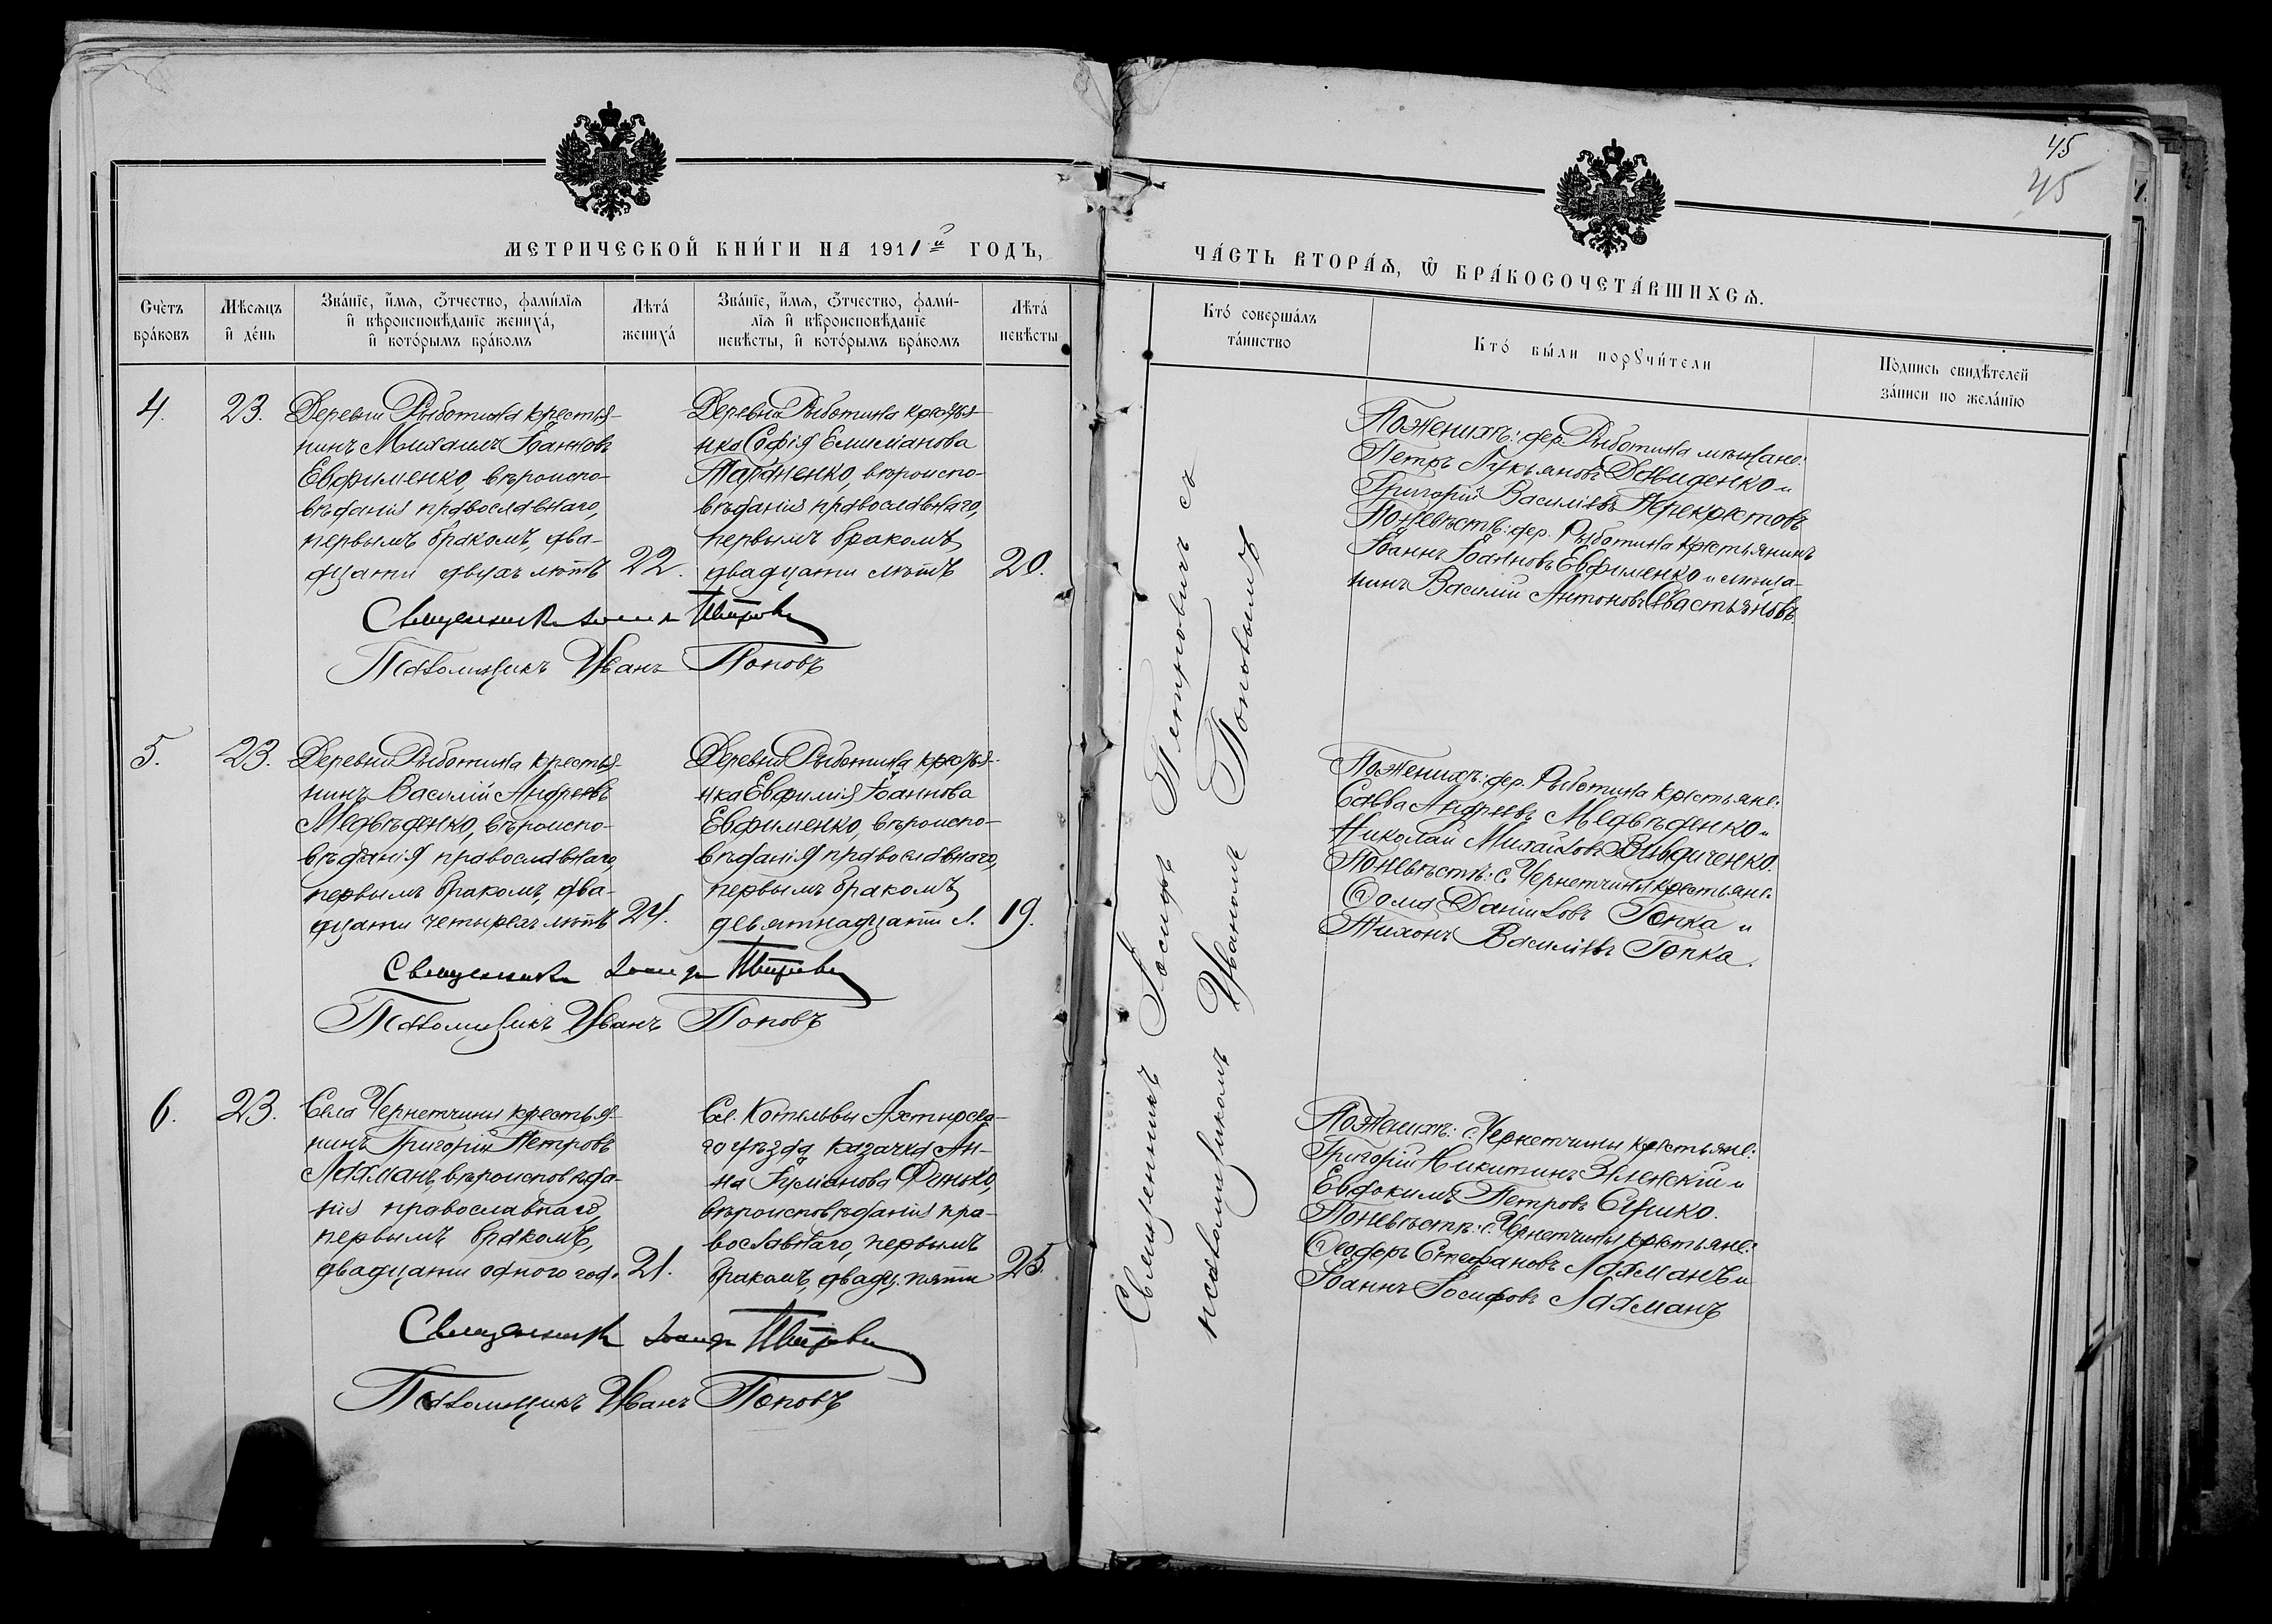 45
45
МЕТРИЧЕСКОЙ КНИ́ГИ НА 1911й ГОДЪ,
ЧА́СТЬ ВТОРА́Ѧ, Ѡ҆ БРА́КОСОЧЕТА́ВШИХСѦ.
Сче́тъ бра́ковъ
Мѣ́сѧцъ и҆ де́нь
Зва́нїе, и҆́мѧ, ѻ҆́тчество, фами́лїѧ
и҆ вѣроисповѣ́данїе жениха́,
и҆ кото́рымъ бра́комъ
Лѣта́ жениха́
Зва́нїе, и҆́мѧ, ѻ҆́тчество, фами́-
лїѧ и҆ вѣроисповѣ́данїе
невѣ́сты, и҆ кото́рымъ бра́комъ
Лѣта́ невѣ́сты
Кто́ соверша́лъ
та́инство
Кто́ бы́ли порꙋчи́тели
По́дпись свидѣ́телей
за́писи по жела́нїю
4.
23.
Деревни Рыботина крестья-
нинъ Михаилъ Іоанновъ
Евфименко, вѣроиспо-
вѣданія православнаго,
первымъ бракомъ, два-
дцати двухъ лѣтъ
22.
Деревни Рыботина крестья-
нка Софія
вѣроиспо-
вѣданія православнаго,
первымъ бракомъ,
двадцати лѣтъ
20.
Священникъ
Псаломщикъ Иванъ Поповъ
По женихѣ: дер. Рыботина мѣщане:
Петръ Лукьяновъ Давиденко и
Григорій Василіевъ Перекрестовъ
По невѣстѣ: дер. Рыботина крестьянинъ
Іоаннъ Іоанновъ Евфименко и мѣща-
нинъ Василій Антоновъ Севастьяновъ.
5.
23.
Деревни Рыботина крестья-
нинъ Василій Андреевъ
Медвѣденко, вѣроиспо-
вѣданія православнаго,
первымъ бракомъ, два-
дцати четырехъ лѣтъ
24.
Деревни Рыботина крестья-
нка Евфимія Іоаннова
Евфименко, вѣроиспо-
вѣданія православнаго,
первымъ бракомъ,
девятнадцати л.
19.
Священникъ
Псаломщикъ Иванъ Поповъ
По женихѣ: дер. Рыботина крестьяне:
Савва Андреевъ Медвѣденко и
Николай Михайловъ
По невѣстѣ: с. Чернетчины крестьяне:
Ѳома Даніиловъ Гопка и
Тихонъ Василіевъ Гопка.
6.
23.
Села Чернетчины крестья-
нинъ Григорій Петровъ
Лахманъ, вѣроисповѣда-
нія православнаго,
первымъ бракомъ,
двадцати одного года
21.
Сл. Котельвы Ахтырска-
го уѣзда казачка Ан-
на Финько,
вѣроисповѣданія пра-
вославнаго, первымъ
бракомъ, двадц. пяти
25.
Священникъ
Псаломщикъ Иванъ Поповъ
По женихѣ: с. Чернетчины крестьяне:
Григорій Никитинъ и
Евдокимъ Петровъ
По невѣстѣ: с. Чернетчины крестьяне:
Ѳеодоръ Стефановъ Лахманъ и
Іоаннъ Іосифовъ Лахманъ
Священникъ Іосифъ Петровичъ съ
псаломщикомъ Иваномъ Поповымъ